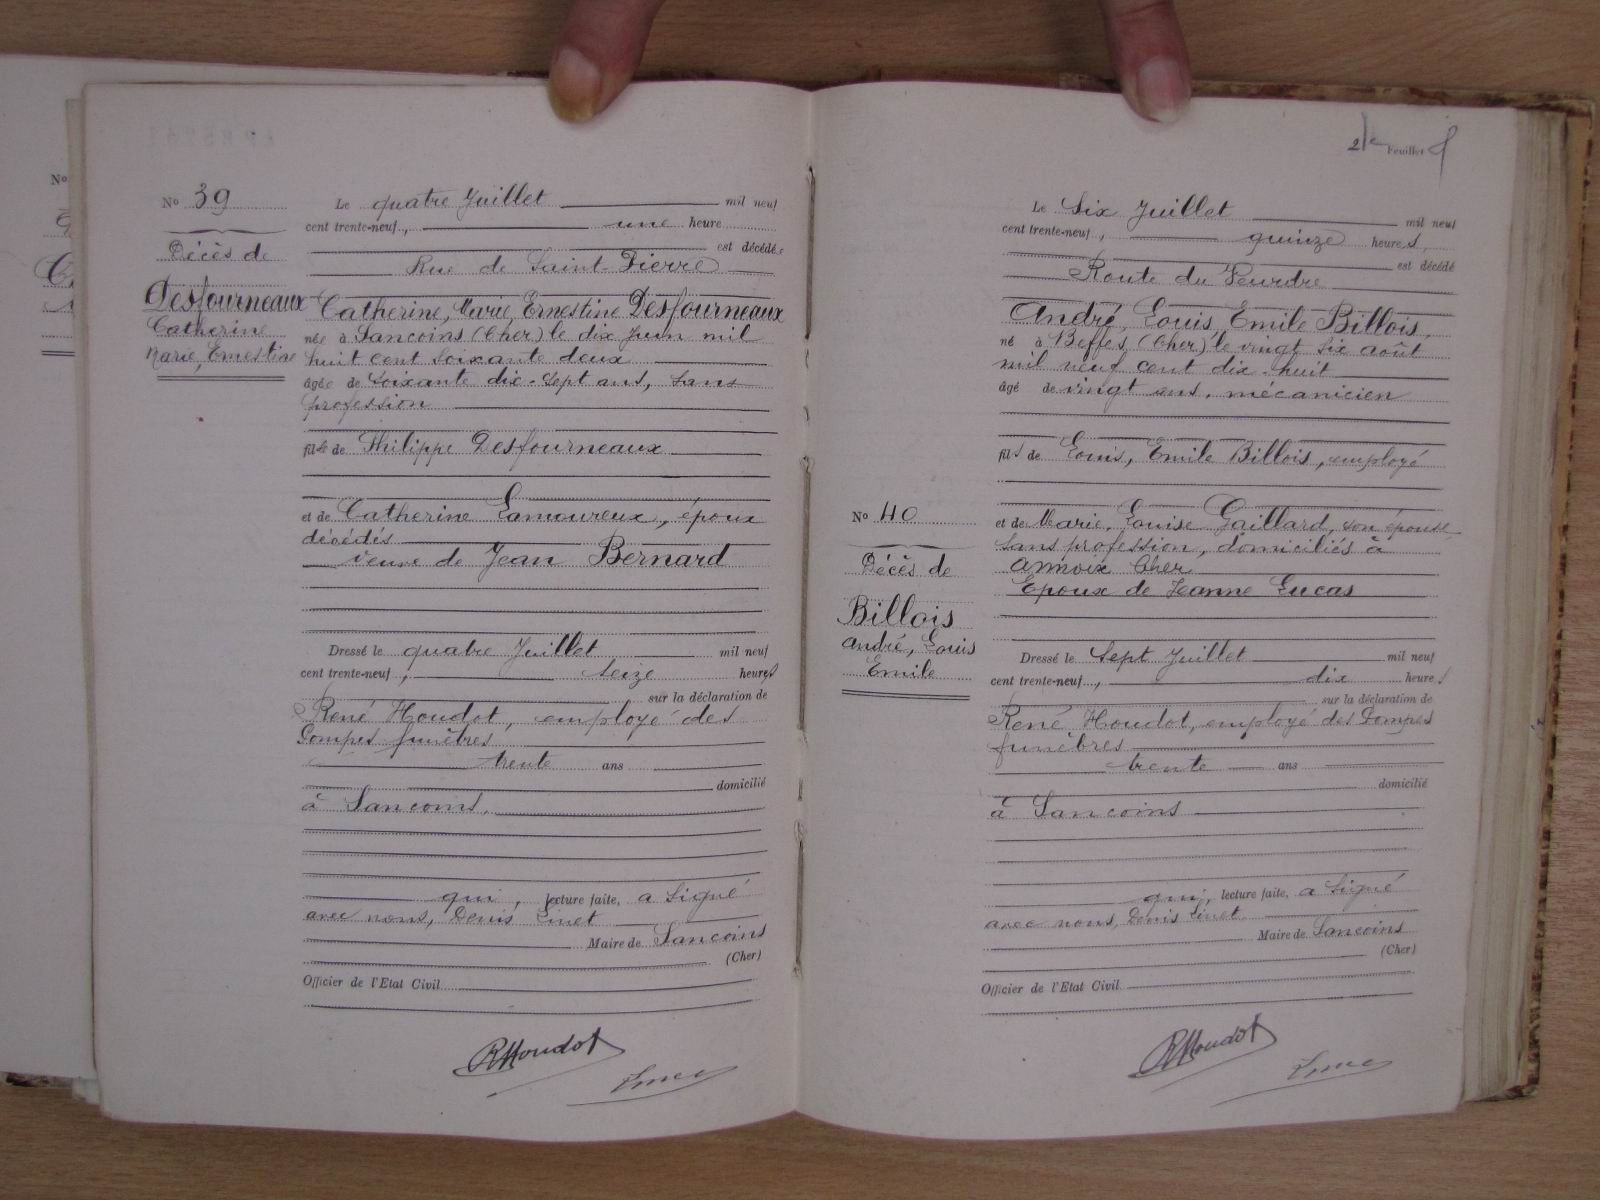 No
No 39
Décès de
Desfourneaux
Catherine
Marie, Ernestine
Le quatre Juillet mil neuf
cent trente-neuf, une heure
est décédée
Rue de Saint-Pierre
Catherine, Marie, Ernestine Desfourneaux
née à Sancoins (Cher) le dix Juin mil
huit cent soixante deux
âgée de soixante dix-sept ans, sans
profession
fille de Philippe Desfourneaux
et de Catherine Lamoureux, époux
décédés
veuve de Jean Bernard
Dressé le quatre Juillet mil neuf
cent trente-neuf, seize heures
sur la déclaration de
René Houdot, employé des
Pompes funèbres
trente ans
domicilié
à Sancoins.
qui, lecture faite, a signé
avec nous, Denis Linet
Maire de Sancoins
(Cher)
Officier de l'Etat Civil
RHoudot
Feuillet
No 40
Décès de
Billois
André, Louis
Emile
Le Six Juillet mil neuf
cent trente-neuf, quinze heures,
est décédé
Route du Veurdre
André, Louis, Emile Billois,
né à Beffes, (Cher) le vingt six août
mil neuf cent dix-huit
âgé de vingt ans, mécanicien
fils de Louis, Emile Billois, employé
et de Marie, Louise Gaillard, son épouse,
sans profession, domiciliés à
Annoix Cher
Epoux de Jeanne Lucas
Dressé le Sept Juillet mil neuf
cent trente-neuf, dix heures
sur la déclaration de
René Houdot, employé des Pompes
funèbres
trente ans
domicilié
à Sancoins
qui, lecture faite, a signé
avec nous, Denis Linet
Maire de Sancoins
(Cher)
Officier de l'Etat Civil
RHoudot